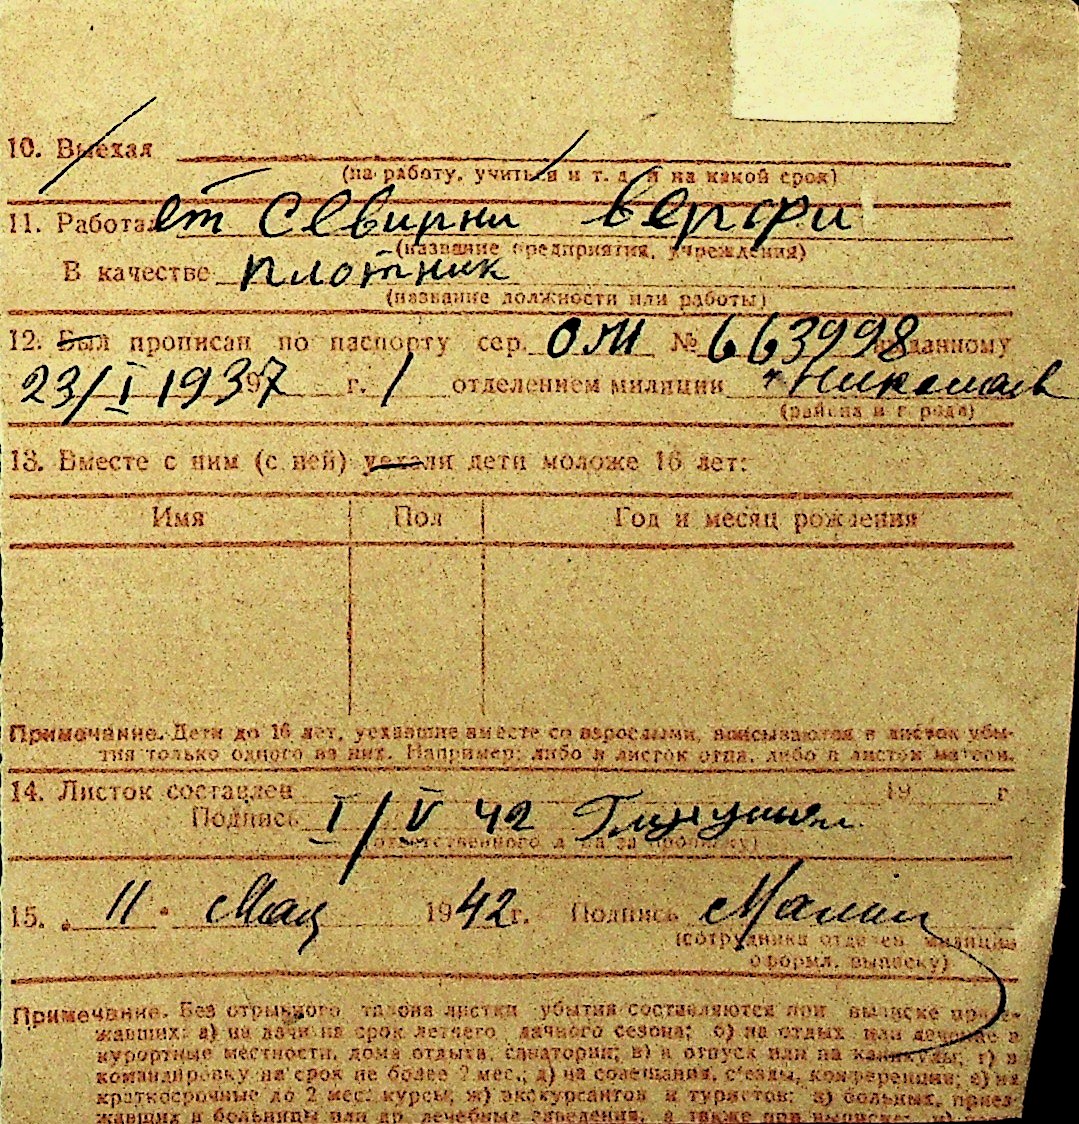 10. Выехал
(на работу, учиться и т. д. и на какой срок)
11. Работал ет Севирни верфи
(название предприятия, учреждения)
В качестве плотник
(название должности или работы)
12. Был прописан по паспорту сер. ОМ № 663998 выданному
23/I 1937 г. 1 отделением милиции г Николаев
(района и города)
13. Вместе с ним (с ней) уехали дети моложе 16 лет:
Имя Пол Год и месяц рождения
Примечание. Дети до 16 лет, уехавшие вместе со взрослыми, вписываются в листок убы-
тия только одного из них. Например: либо в листок отца, либо в листок матери.
14. Листок составлен 19 г
Подпись I/V 42
(ответственного лица за прописку)
15. „ 11 " Мая 1942 г. Подпись
(сотрудника отделен. милиции
оформл. выписку)
Примечание. Без отрывного талона листки убытия составляются при выписке приез-
жавших: а) на дачи на срок летнего дачного сезона; б) на отдых или лечение в
курортные местности, дома отдыха, санатории; в) в отпуск или на каникулы; г) в
командировку на срок не более 2 мес.; д) на совещания, съезды, конференции; е) на
краткосрочные до 2 мес. курсы; ж) экскурсантов и туристов; з) больных, приез-
жавших в больницы или др. лечебные заведения, а также при выписке: